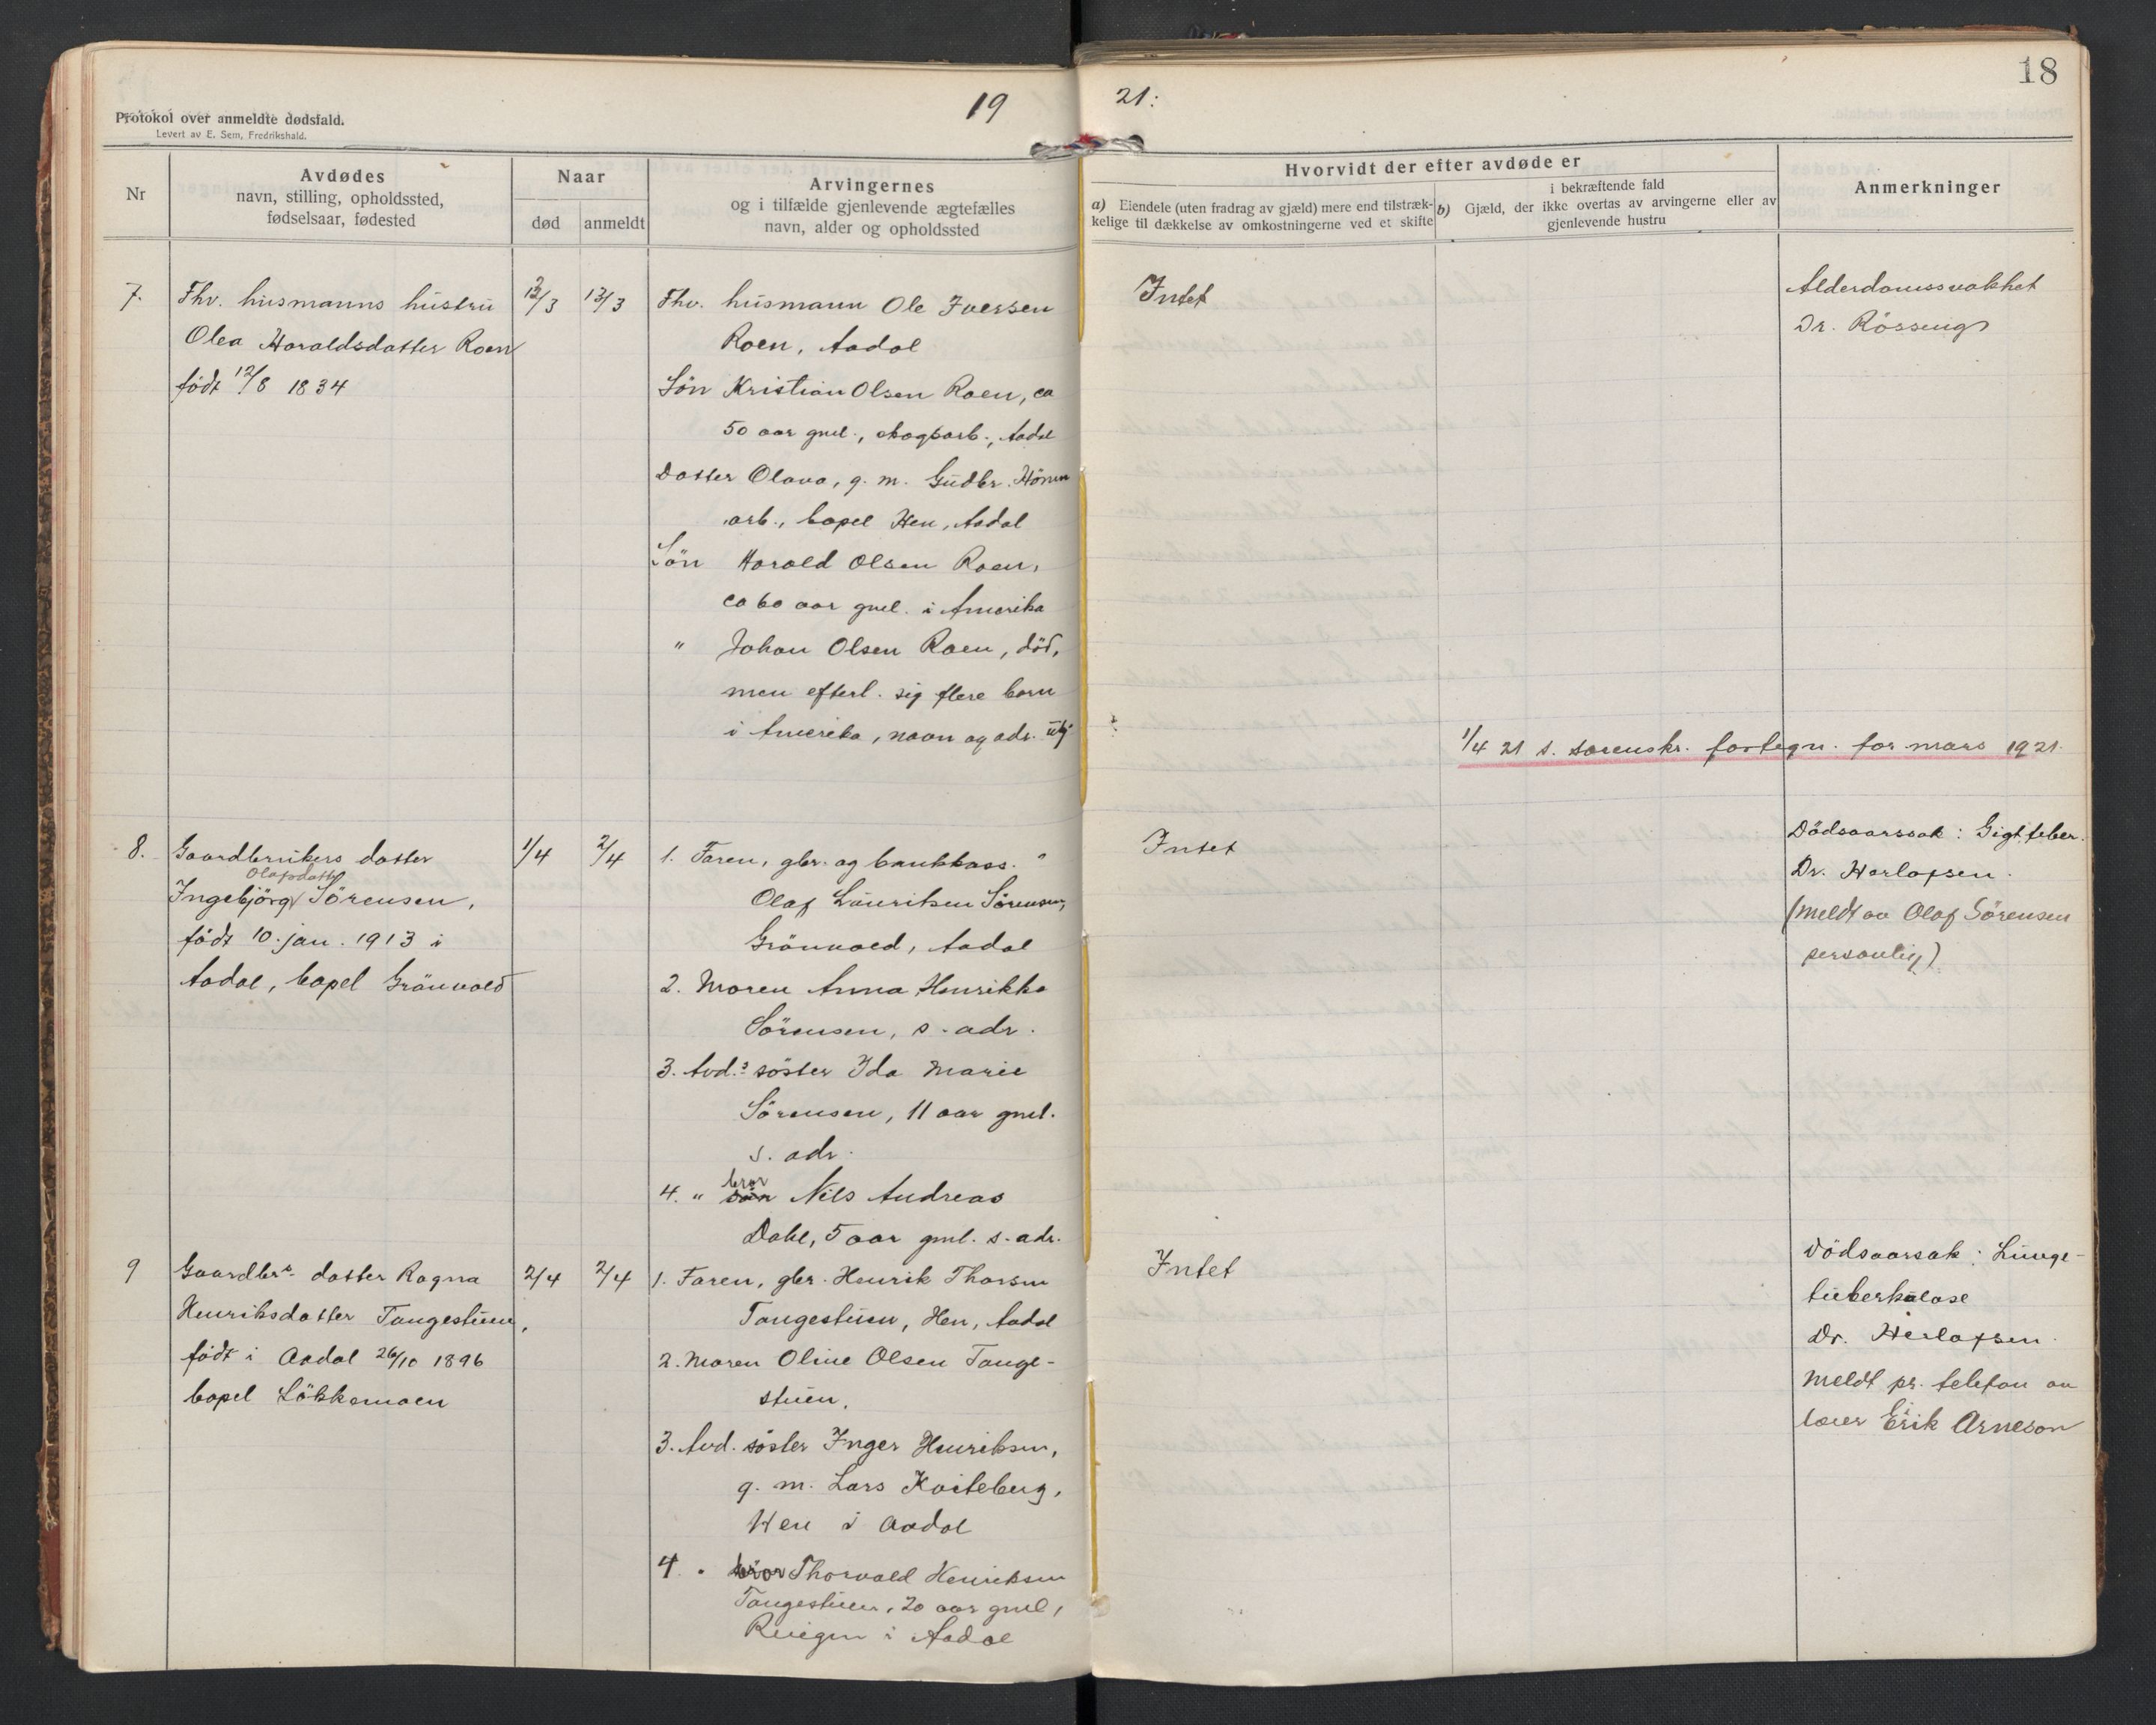 Protokol over anmeldte dødsfald.
Levert av E. Sem, Fredrikshald.
19
21:
18
Nr
Avdødes
navn, stilling, opholdssted,
fødselsaar, fødested
Naar
død
anmeldt
Arvingernes
og i tilfælde gjenlevende ægtefælles
navn, alder og opholdssted
Hvorvidt der efter avdøde er
a) Eiendele (uten fradrag av gjæld) mere end tilstræk-
kelige til dækkelse av omkostningerne ved et skifte
i bekræftende fald
b) Gjæld, der ikke overtas av arvingerne eller av
gjenlevende hustru
Anmerkninger
7.
Fhv. husmanns hustru
Olea Haraldsdatter Roen
født 12/8 1834
12/3
13/3
Fhv. husmann Ole Iversen
Roen, Aadal
Sön Kristian Olsen Roen, ca
50 aar gml., skogsarb., Aadal
Datter Olava, g. m. Gudbr.
arb., bopel Hen, Aadal
Sön Harald Olsen Roen,
ca 60 aar gml. i Amerika
" Johan Olsen Roen, död,
men efterl. sig flere barn
i Amerika, navn og adr. ubj
Intet
Alderdomssvakhet
Dr. Rösseng
1/4 21 s. sorenskr. fortegn. for mars 1921.
8.
Gaardbrukers datter
Olafsdatter
Ingebjörg Sörensen,
född 10. jan. 1913 i
Aadal, bopel Grönvold
1/4
2/4
1. Faren, gbr. og bankkass.
Olaf Lauritsen Sörensen,
Grönvold, Aadal
2. Moren Anna Henrikka
Sörensen, s. adr.
3. Avd.s söster Ida Marie
Sörensen, 11 aar gml.
s. adr.
4. " sön bror Nils Andreas
Dahl, 5 aar gml. s. adr.
Intet
Dödsaarsak: Gigtfeber.
Dr. Herlofsen.
(meldt av Olaf Sörensen
personlig)
9
Gaardbrs. datter Ragna
Henriksdatter Tangestuen,
født i Aadal 26/10 1896
bopel Løkkemoen
2/4
2/4
1. Faren, gbr. Henrik Thorsen
Tangestuen, Hen, Aadal
2. Moren Oline Olsen Tange-
stuen.
3. Avd. söster Inger Henriksen,
g. m. Lars Kviteberg,
Hen i Aadal
4. " bror Thorvald Henriksen
Tangestuen, 20 aar gml,
i Aadal
Intet
Dödsaarsak: Lunge-
tuberkulose
Dr. Herlofsen.
Meldt pr. telefon av
Erik Arneson